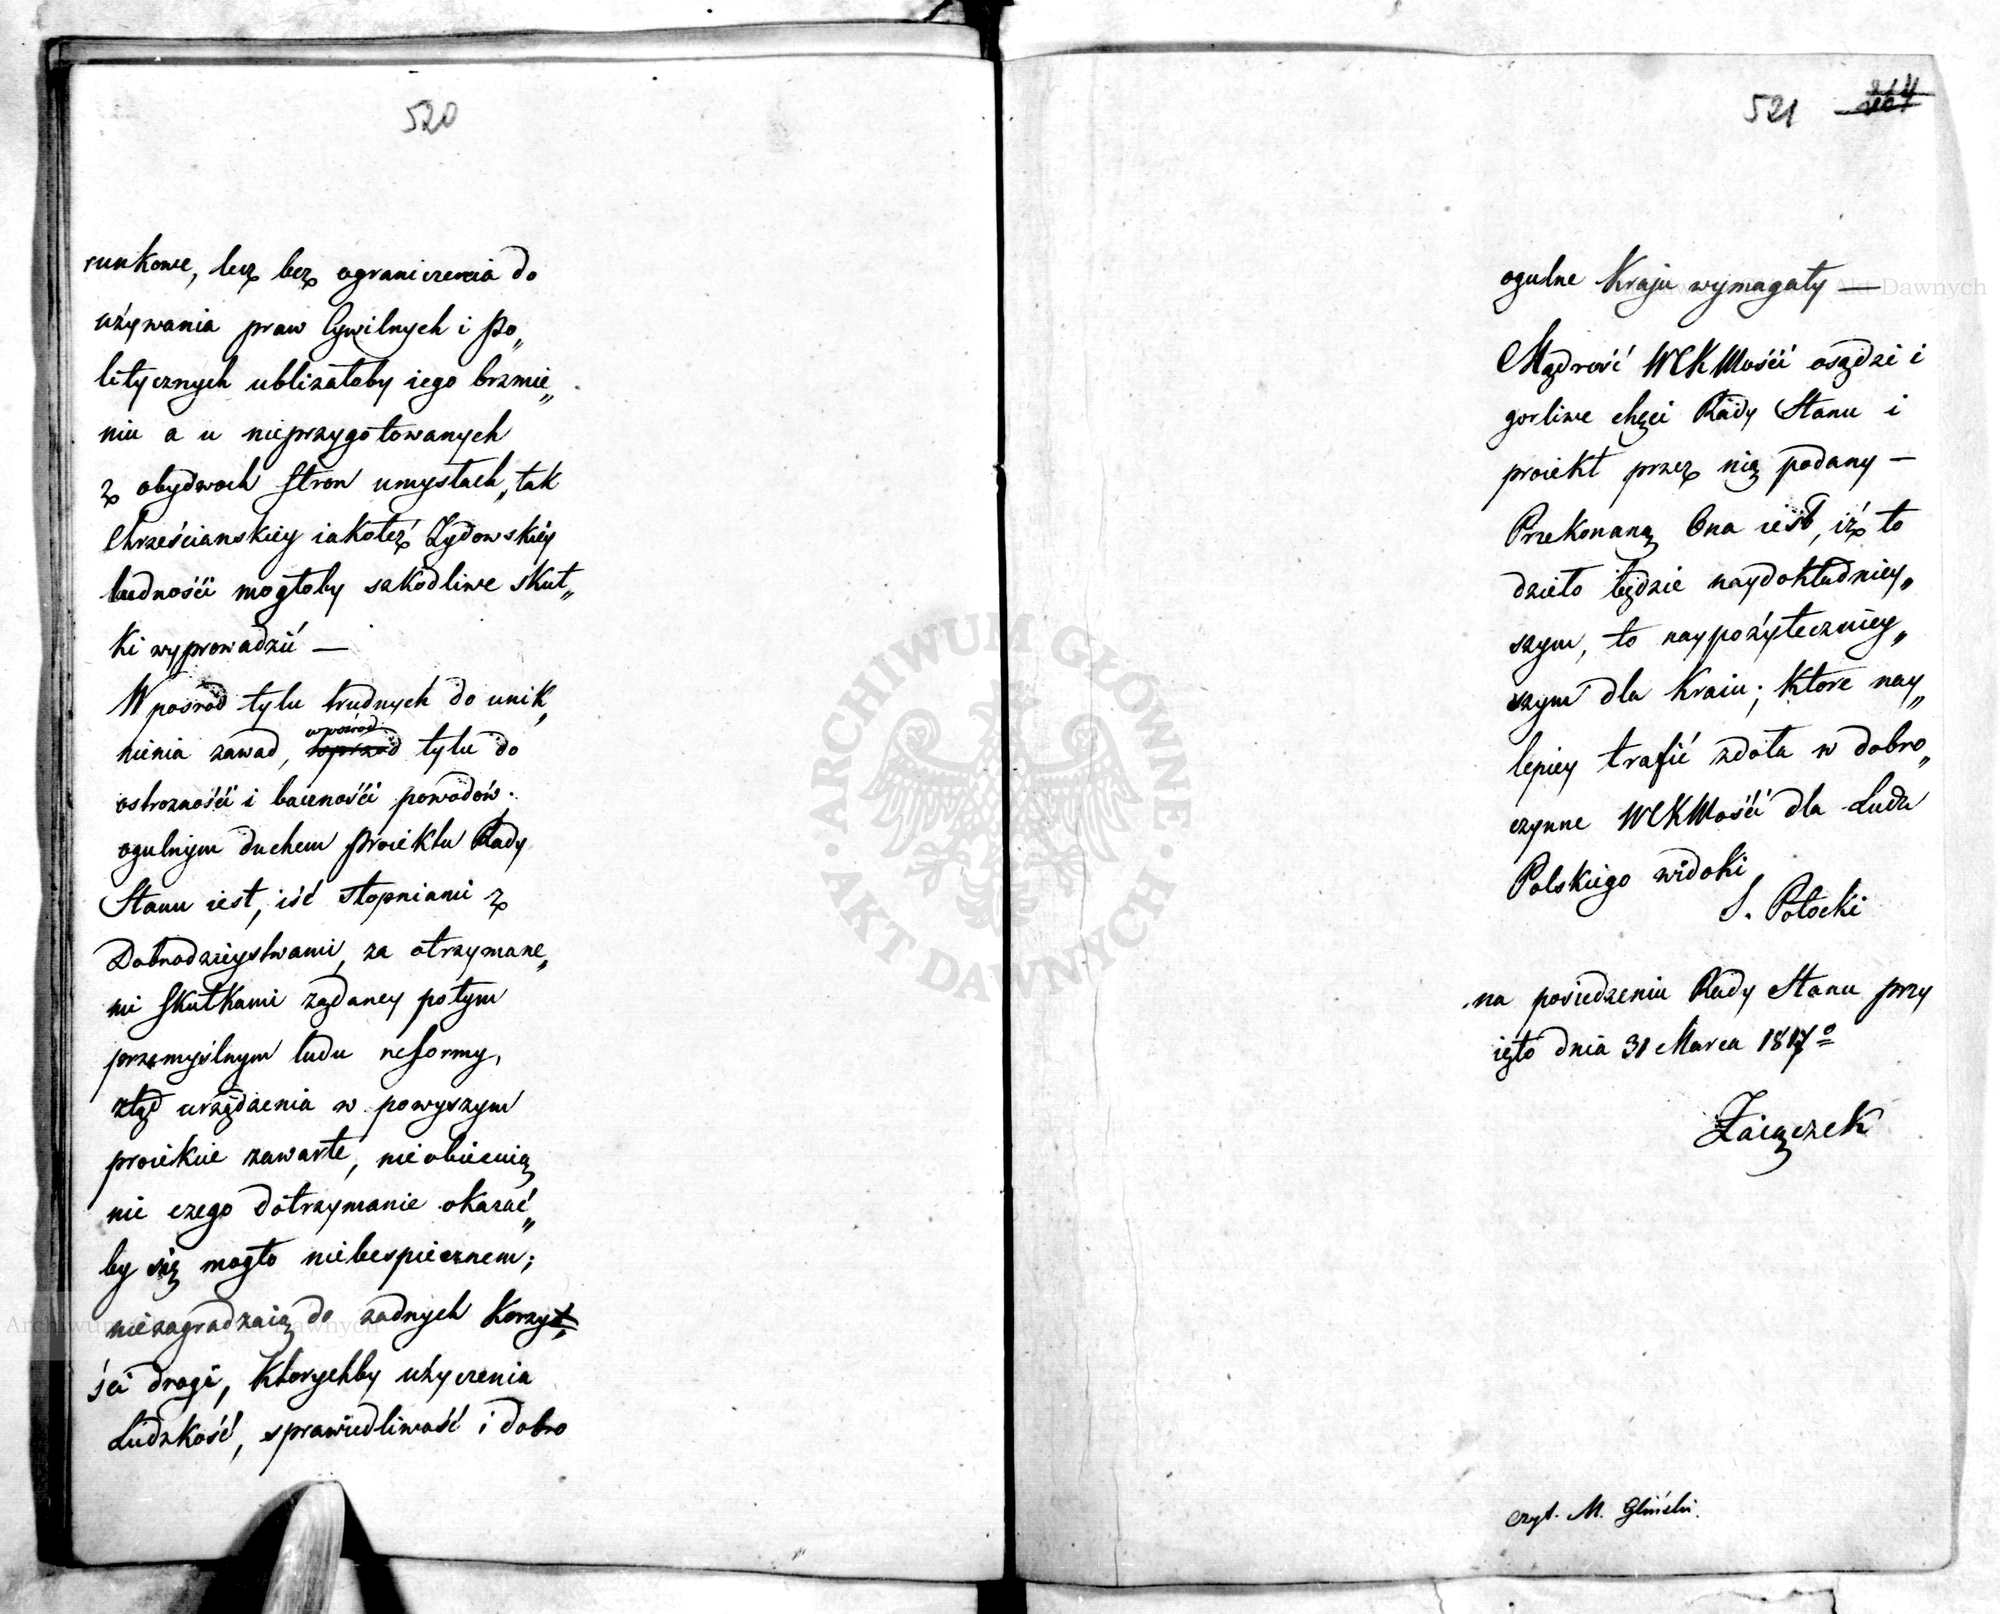 520
runkowe, lecz bez ograniczenia do
używania praw Cywilnych i Po„
litycznych ubliżałoby iego brzmie„
niu a u nieprzygotowanych
z obydwoch Stron umysłach, tak
Chrześcianskiey iakoteż Żydowskiéy
ludnośći mogłoby szkodliwe skut„
ki wyprowadzić —
Wpośrod tylu trudnych do unik„
nienia zawad, wpośrod tylu do
ostrożnośći i bacznośći powodów.
ogulnym duchem proiektu Rady
Stanu iest, iść stopniami z
Dobrodzieystwami, za otrzymane„
mi skutkami żądaney potym
przemyślnym ludu reformy,
ztąd urządzenia w powyższym
proiekcie zawarte, nie obiecuią
nic czego dotrzymanie okazać„
by się mogło niebespiecznem;
niezagradzaią do żadnych Korzy„
śći drogi, Ktorychby użyczenia
Ludzkość, sprawiedliwość i dobro
521
ogulne Kraju wymagały —
Mądrość WCKMośći osądzi i
gorliwe chęci Rady Stanu i
proiekt przez nią podany —
Przekonaną Ona iest, iż to
dzieło będzie naydokładniey„
szym, to naypożyteczniey„
szym dla Kraiu; Ktore nay„
lepiey trafić zdoła w dobro„
czynne WCKMośći dla Ludu
Polskiego widoki
S. Potocki
na posiedzeniu Rady Stanu przy
ięto dnia 31 Marca 1817º
Zaiączek
czyt. M. Gliński.
ARCHIWUM GŁÓWNE · AKT DAWNYCH ·